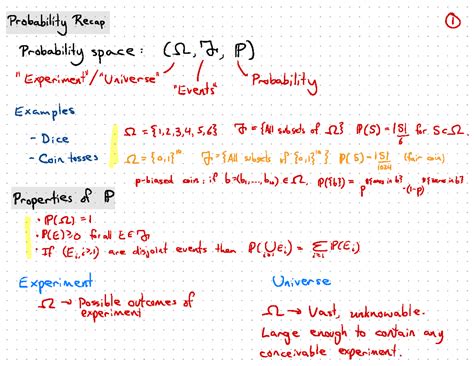 Probability Recap
①
Probability space: (Ω, ℱ, ℙ)
"Experiment"/"Universe"
"Events"
Probability
Examples
- Dice
Ω = {1,2,3,4,5,6} ℱ = {All subsets of Ω} ℙ(S) = |S|/6 for S⊂Ω.
- Coin tosses
Ω = {0,1}¹⁰ ℱ = {All subsets of {0,1}¹⁰} ℙ(S) = |S|/1024 (fair coin)
p-biased coin: if b=(b₁,...,b₁₀) ∈ Ω, ℙ({b}) = p^#{ones in b}·(1-p)^#{zeros in b}
Properties of ℙ
• ℙ(Ω) = 1
• ℙ(E) ≥ 0 for all E ∈ ℱ
• If (Eᵢ, i≥1) are disjoint events then ℙ(⋃_{i≥1} Eᵢ) = Σ_{i≥1} ℙ(Eᵢ)
Experiment
Ω → Possible outcomes of
experiment
Universe
Ω → Vast, unknowable.
Large enough to contain any
conceivable experiment.